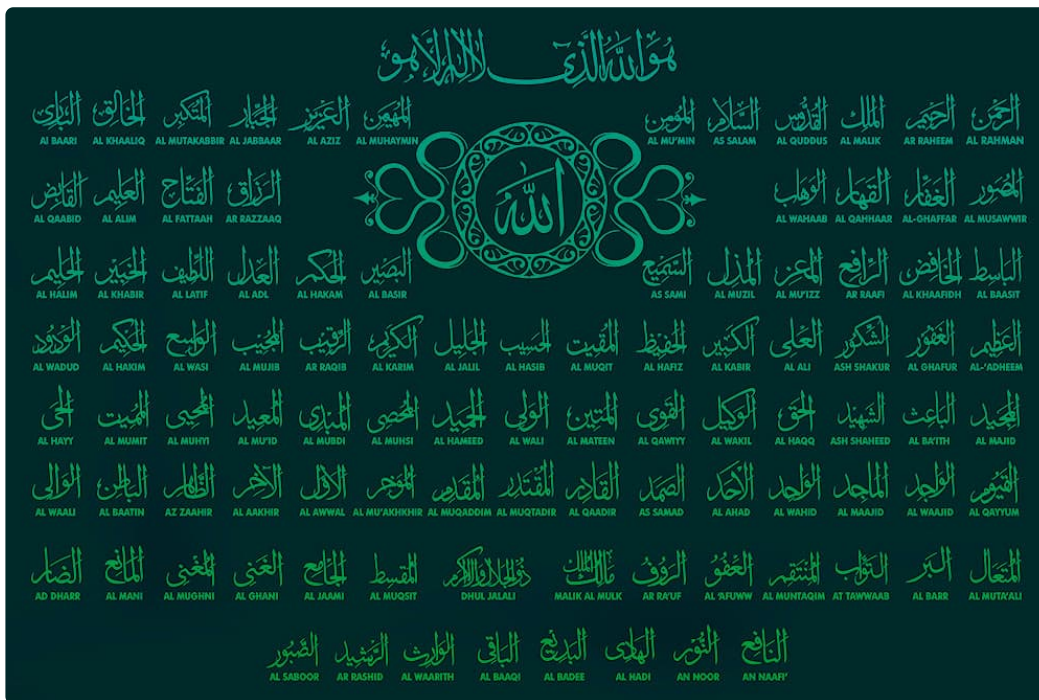 هو الله الذي لا اله الا هو
الرحمن الرحيم الملك القدوس السلام المؤمن المهيمن العزيز الجبار المتكبر الخالق البارئ
AL RAHMAN AR RAHEEM AL MALIK AL QUDDUS AS SALAM AL MU'MIN AL MUHAYMIN AL AZIZ AL JABBAAR AL MUTAKABBIR AL KHAALIQ Al BAARI
الله
المصور الغفار القهار الوهاب الرزاق الفتاح العليم القابض
AL MUSAWWIR AL-GHAFFAR AL QAHHAAR AL WAHAAB AR RAZZAAQ AL FATTAAH AL ALIM AL QAABID
الباسط الخافض الرافع المعز المذل السميع البصير الحكم العدل اللطيف الخبير الحليم
AL BAASIT AL KHAAFIDH AR RAAFI AL MU'IZZ AL MUZIL AS SAMI AL BASIR AL HAKAM AL ADL AL LATIF AL KHABIR AL HALIM
العظيم الغفور الشكور العلى الكبير الحفيظ المقيت الحسيب الجليل الكريم الرقيب المجيب الواسع الحكيم الودود
AL-'ADHEEM AL GHAFUR ASH SHAKUR AL ALI AL KABIR AL HAFIZ AL MUQIT AL HASIB AL JALIL AL KARIM AR RAQIB AL MUJIB AL WASI AL HAKIM AL WADUD
المجيد الباعث الشهيد الحق الوكيل القوى المتين الولى الحميد المحصى المبدئ المعيد المحيى المميت الحى
AL MAJID AL BA'ITH ASH SHAHEED AL HAQQ AL WAKIL AL QAWIYY AL MATEEN AL WALI AL HAMEED AL MUHSI AL MUBDI AL MU'ID AL MUHYI AL MUMIT AL HAYY
القيوم الواجد الماجد الواحد الاحد الصمد القادر المقتدر المقدم المؤخر الاول الآخر الظاهر الباطن الوالى
AL QAYYUM AL WAAJID AL MAAJID AL WAHID AL AHAD AS SAMAD AL QAADIR AL MUQTADIR AL MUQADDIM AL MU'AKHKHIR AL AWWAL AL AAKHIR AZ ZAAHIR AL BAATIN AL WAALI
المتعال البر التواب المنتقم العفو الرؤف مالك الملك ذو الجلال والاكرام المقسط الجامع الغنى المغنى المانع الضار
AL MUTA'ALI AL BARR AT TAWWAAB AL MUNTAQIM AL 'AFUWW AR RA'UF MALIK AL MULK DHUL JALALI AL MUQSIT AL JAAMI AL GHANI AL MUGHNI AL MANI AD DHARR
النافع النور الهادى البديع الباقى الوارث الرشيد الصبور
AN NAAFI' AN NOOR AL HADI AL BADEE AL BAAQI AL WAARITH AR RASHID AL SABOOR